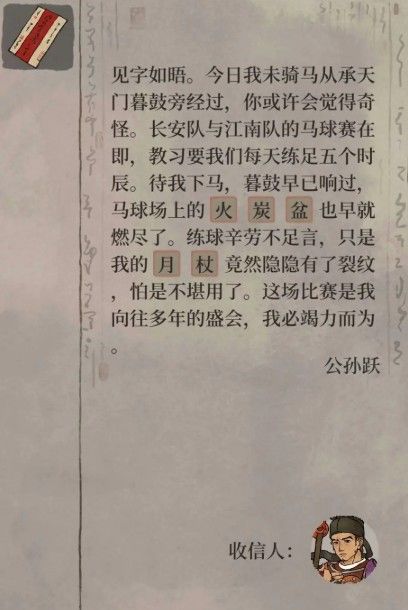 见字如晤。今日我未骑马从承天
门暮鼓旁经过，你或许会觉得奇
怪。长安队与江南队的马球赛在
即，教习要我们每天练足五个时
辰。待我下马，暮鼓早已响过，
马球场上的 火 炭 盆 也早就
燃尽了。练球辛劳不足言，只是
我的 月 杖 竟然隐隐有了裂纹
，怕是不堪用了。这场比赛是我
向往多年的盛会，我必竭力而为
。
公孙跃
收信人：